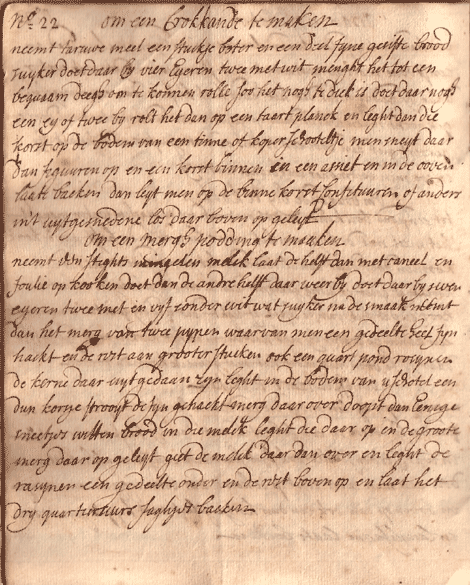 N.º 22 om een Crokkande te maken
neemt taruwe meel een stukje boter en een deel fyne gesifte brood
suyker doet daar by vier Eyeren twee met wit menght het tot een
bequaam deegh om te konnen rolle soo het nogh te dick is doet daar nogh
een ey of twee by rolt het dan op een taart planck en leght dan die
korst op de bodem van een tinne of koper schooteltje men snyt daar
dan figuuren op en een korst binnen in een assiet en in de ooven
laate backen dan leyt men op de binne korst Confituuren of anders
in't uytgesnedene los daar boven op geleyt
om een mergh podding te maaken
neemt mingelen melck laat de helft dan met caneel en
foulie op kooken doet dan de andre helft daar weer by doet daar by
eyeren twee met en vyf sonder wit wat suyker na de smaak neemt
dan het merg van twee pypen waar van men een gedeelte heel fyn
hackt en de rest aan grooter stucken ook een quart pond rosynen
de korne daar uyt gedaan zyn leght in de bodem van u schotel een
dun korsje strooyt de fyn gehackt merg daar over doopt dan eenige
sneetjes witten brood in die melck leght die daar op en de groote
merg daar op geleyt giet de melck daar dan over en leght de
rasynen een gedeelte onder en de rest boven op en laat het
dry quartieruurs saghjes backen